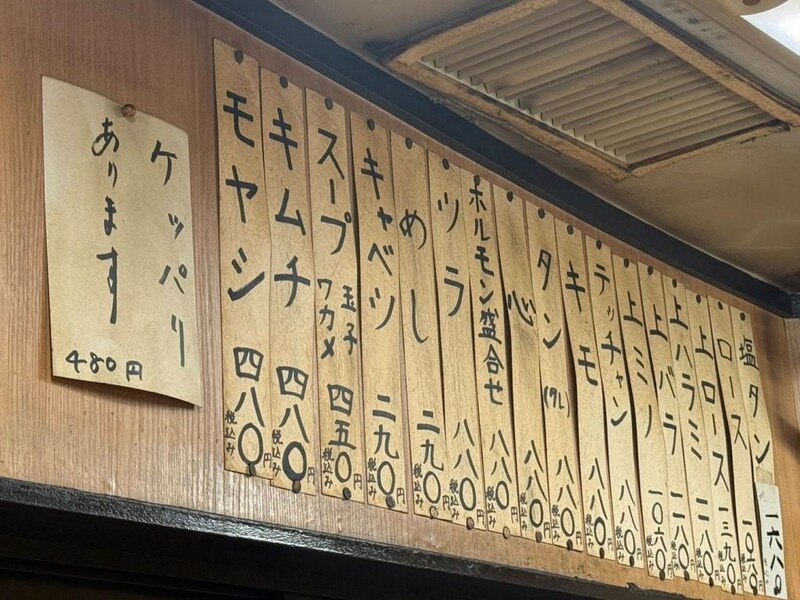 塩タン 一六八〇
ロース 一〇六〇円 税込み
上ロース 一三九〇円 税込み
上ハラミ 一二八〇円 税込み
上バラ 一二八〇円 税込み
上ミノ 一〇六〇円 税込み
テッチャン 八八〇円 税込み
キモ 八八〇円 税込み
タン(タレ) 八八〇円 税込み
心 八八〇円 税込み
ホルモン盛合せ 八八〇円 税込み
ツラ 八八〇円 税込み
めし 二九〇円 税込み
キャベツ 二九〇円 税込み
スープ 玉子 ワカメ 四五〇円 税込み
キムチ 四八〇円 税込み
モヤシ 四八〇円 税込み
ケッパリ
あります
480円